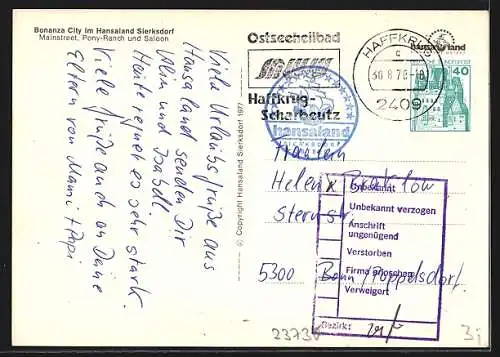 Bonanza City im Hansaland Sierksdorf
Mainstreet, Pony-Ranch und Saloon
Viele Urlaubsgrüße aus
Hansaland senden Dir
und
Heute regnet es sehr stark.
Viele Grüße auch an Deine
Eltern von Mami + Papi
© Copyright Hansaland Sierksdorf 1977
Ostseeheilbad
Haffkrug-
Scharbeutz
HAFFKRUG
c
30.8.78-18
2409
hansaland
40
hansaland
SIERKSDORF
Helen
Sternstr.
5300 Bonn Poppelsdorf
Unbekannt
Unbekannt verzogen
Anschrift
ungenügend
Verstorben
Firma erloschen
Verweigert
Bezirk:
23735
3j